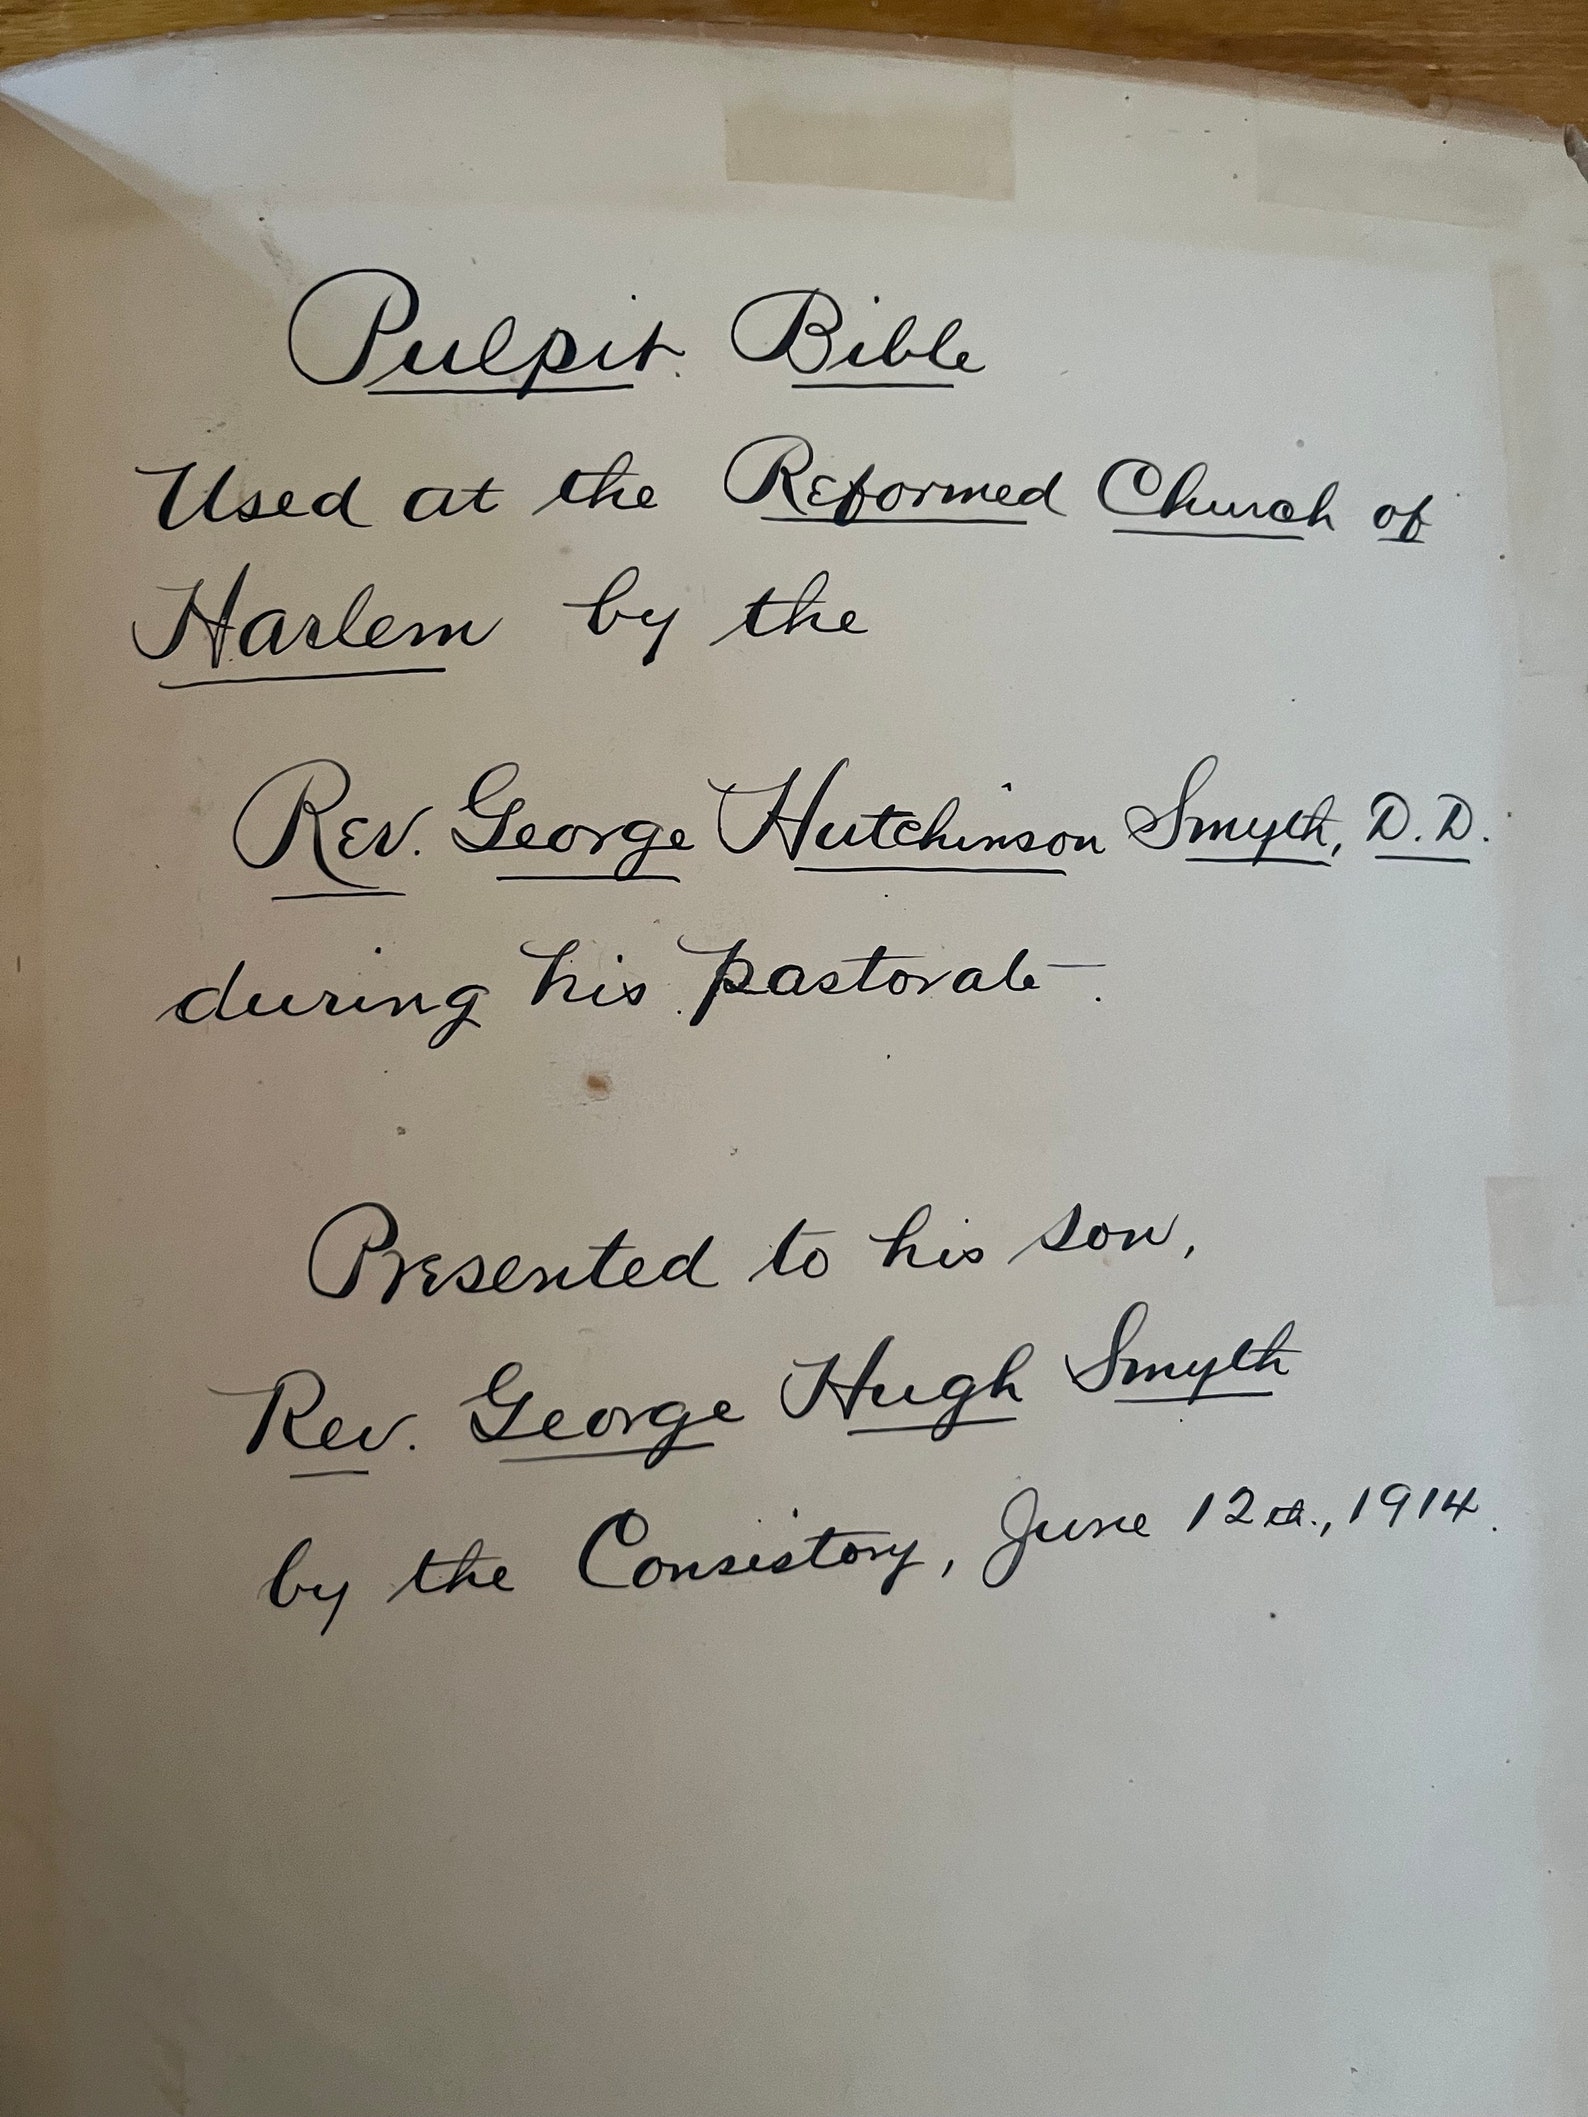 Pulpit Bible
Used at the Reformed Church of
Harlem by the
Rev. George Hutchinson Smyth, D.D.
during his pastorate.
Presented to his son,
Rev. George Hugh Smyth
by the Consistory, June 12th., 1914.